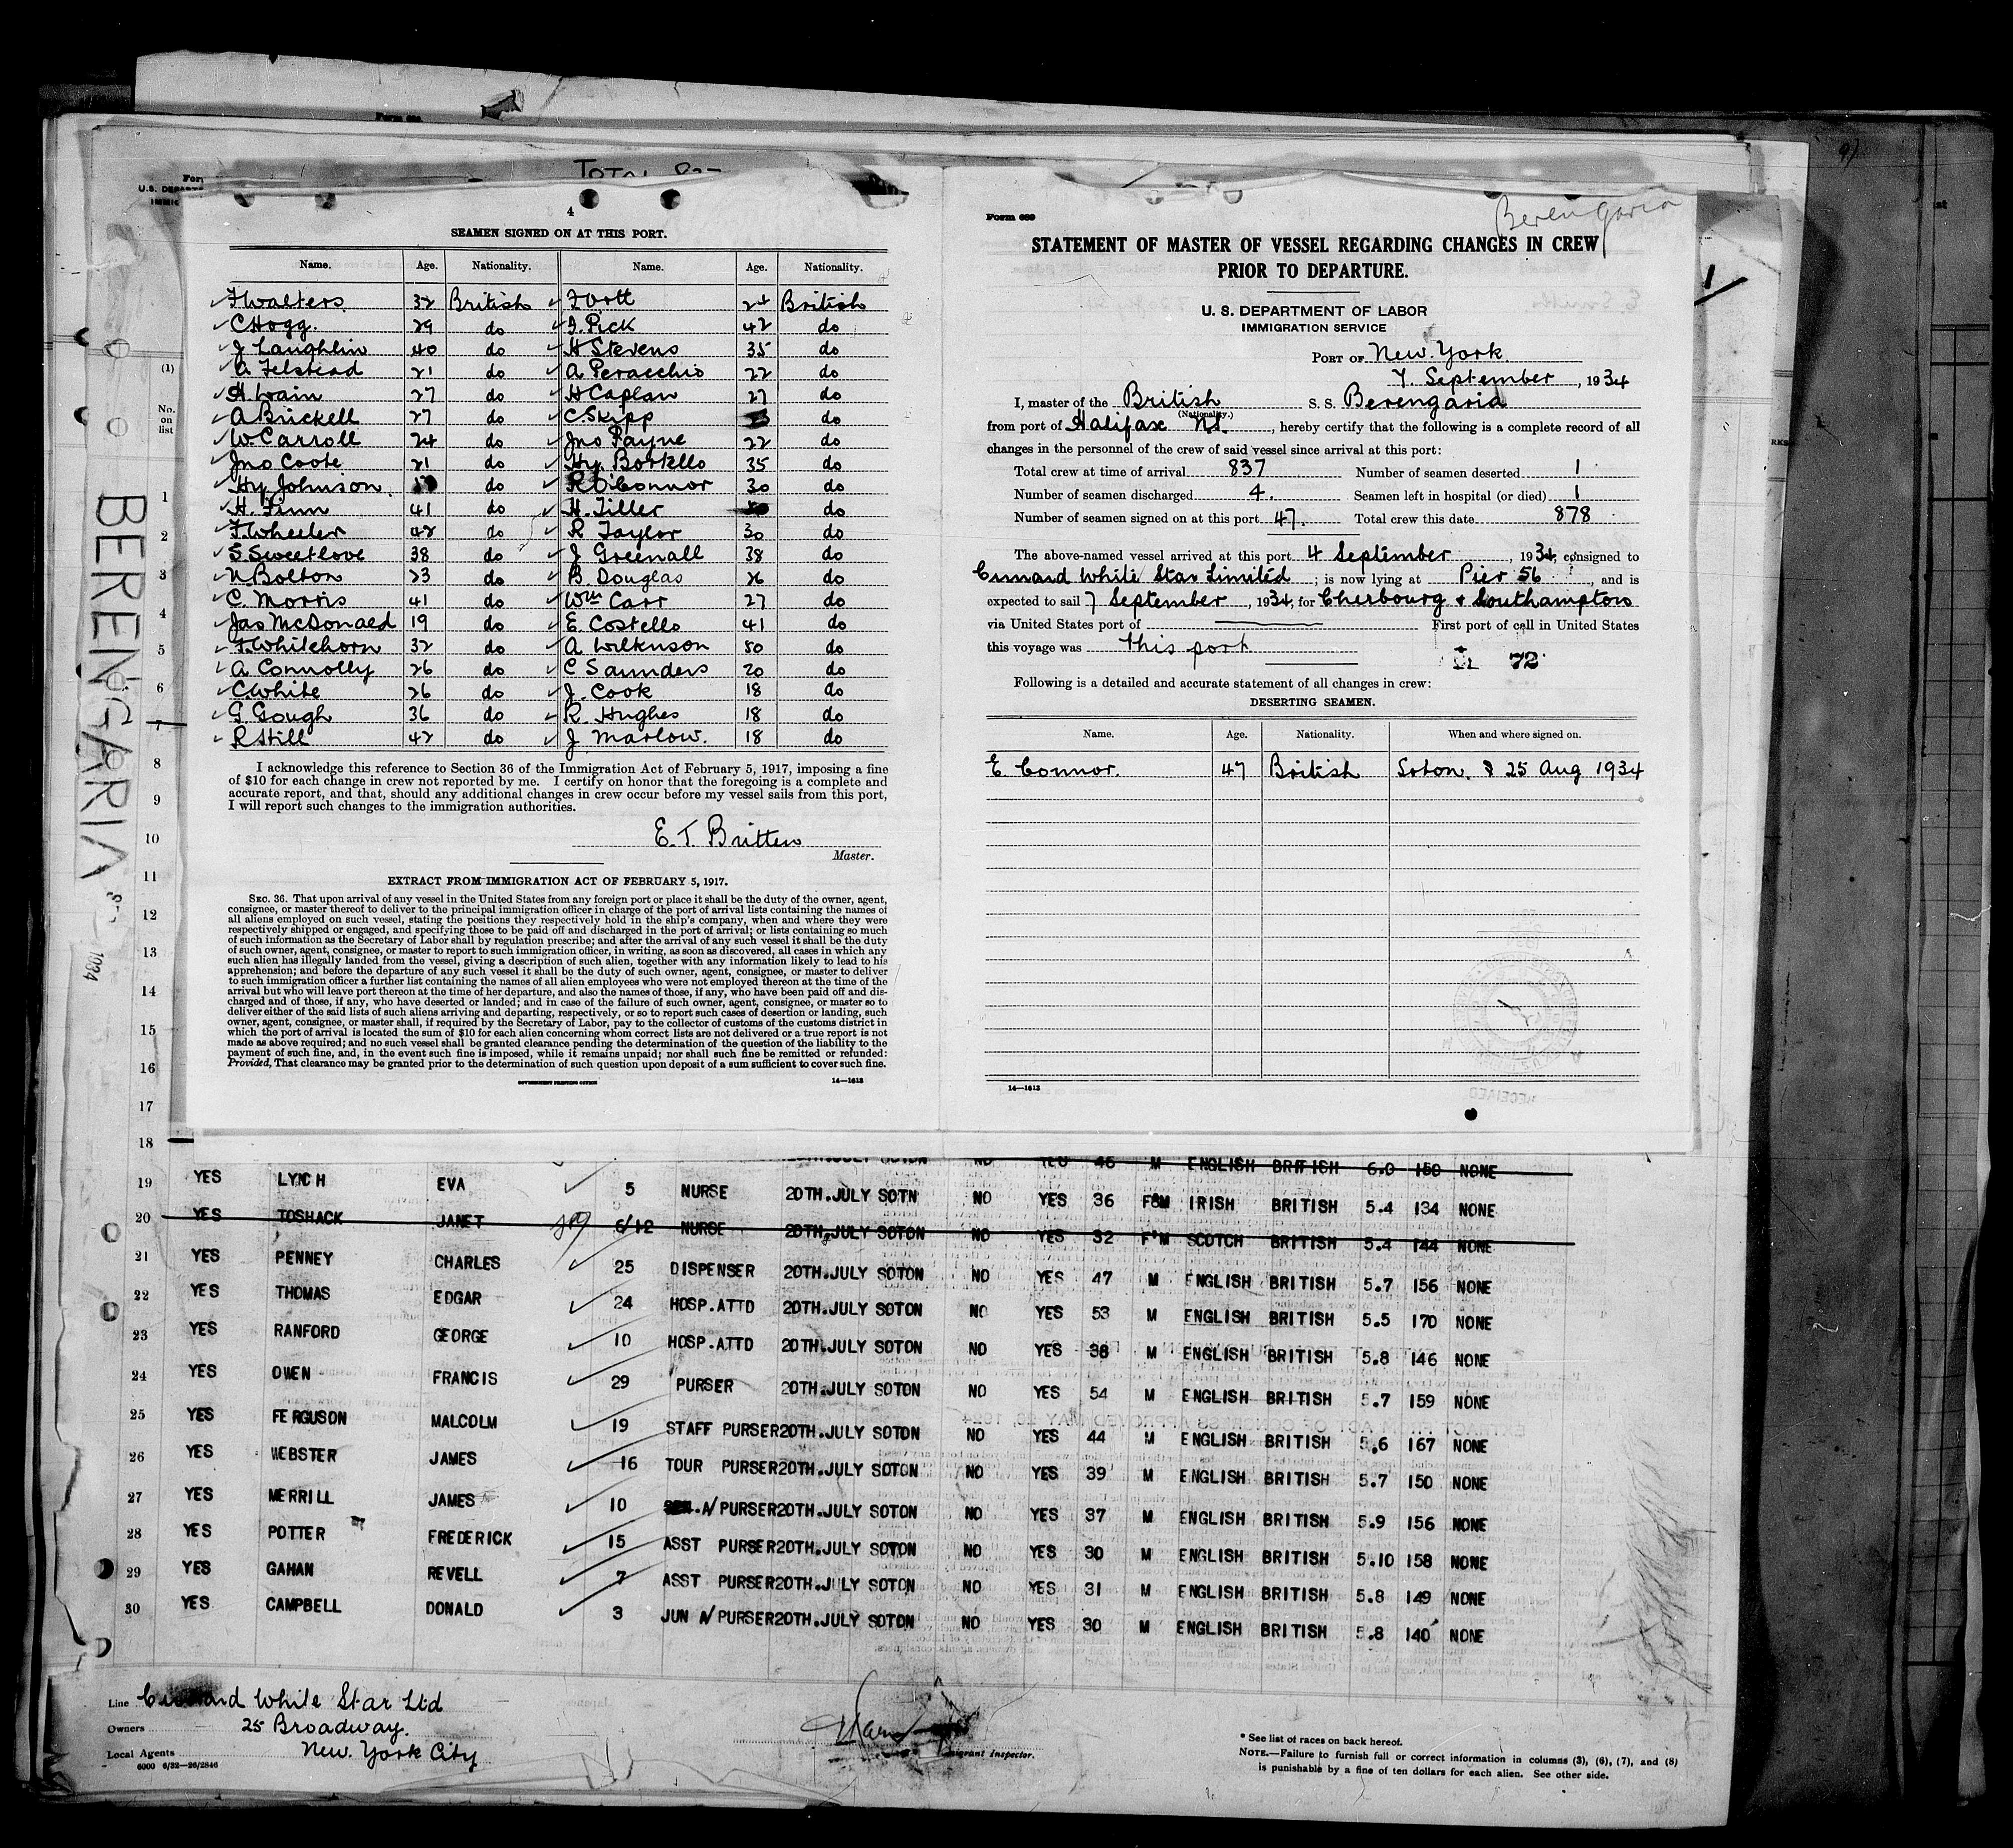 BERENGARIA
1934
4
SEAMEN SIGNED ON AT THIS PORT.
Name. Age. Nationality. Name. Age. Nationality.
F Walters. 32 British F Ortt 24 British
C Hogg. 29 do F. Pick 42 do
J Laughlin 40 do H Stevens 35 do
A Felstead 21 do A Peracchio 22 do
H. Wain 27 do H Caplan 27 do
A Brickell 27 do C. Skipp do
W. Carroll 24 do Jno Payne 22 do
Jno Coote 21 do Hy. Borkllo 35 do
Hy Johnson. do R O'Connor 30 do
H. Finn 41 do H. Tiller do
F. Wheeler 42 do R Taylor 30 do
S. Sweetlove 38 do J Greenall 38 do
N. Bolton 23 do B. Douglas 26 do
C. Morris 41 do Wm Carr 27 do
Jas McDonald 19 do E. Costello 41 do
F. Whitehorn 32 do A Wilkinson 50 do
A Connolly 26 do C Saunders 20 do
C. White 26 do J. Cook 18 do
G. Gough 36 do R. Hughes 18 do
R Still 42 do J Marlow. 18 do
I acknowledge this reference to Section 36 of the Immigration Act of February 5, 1917, imposing a fine
of $10 for each change in crew not reported by me. I certify on honor that the foregoing is a complete and
accurate report, and that, should any additional changes in crew occur before my vessel sails from this port,
I will report such changes to the immigration authorities.
E. T. Britten
Master.
EXTRACT FROM IMMIGRATION ACT OF FEBRUARY 5, 1917.
SEC. 36. That upon arrival of any vessel in the United States from any foreign port or place it shall be the duty of the owner, agent,
consignee, or master thereof to deliver to the principal immigration officer in charge of the port of arrival lists containing the names of
all aliens employed on such vessel, stating the positions they respectively hold in the ship's company, when and where they were
respectively shipped or engaged, and specifying those to be paid off and discharged in the port of arrival; or lists containing so much
of such information as the Secretary of Labor shall by regulation prescribe; and after the arrival of any such vessel it shall be the duty
of such owner, agent, consignee, or master to report to such immigration officer, in writing, as soon as discovered, all cases in which any
such alien has illegally landed from the vessel, giving a description of such alien, together with any information likely to lead to his
apprehension; and before the departure of any such vessel it shall be the duty of such owner, agent, consignee, or master to deliver
to such immigration officer a further list containing the names of all alien employees who were not employed thereon at the time of the
arrival but who will leave port thereon at the time of her departure, and also the names of those, if any, who have been paid off and dis-
charged and of those, if any, who have deserted or landed; and in case of the failure of such owner, agent, consignee, or master so to
deliver either of the said lists of such aliens arriving and departing, respectively, or so to report such cases of desertion or landing, such
owner, agent, consignee, or master shall, if required by the Secretary of Labor, pay to the collector of customs of the customs district in
which the port of arrival is located the sum of $10 for each alien concerning whom correct lists are not delivered or a true report is not
made as above required; and no such vessel shall be granted clearance pending the determination of the question of the liability to the
payment of such fine, and, in the event such fine is imposed, while it remains unpaid; nor shall such fine be remitted or refunded:
Provided, That clearance may be granted prior to the determination of such question upon deposit of a sum sufficient to cover such fine.
GOVERNMENT PRINTING OFFICE 14—1613
Form 689
Berengaria
STATEMENT OF MASTER OF VESSEL REGARDING CHANGES IN CREW
PRIOR TO DEPARTURE.
U. S. DEPARTMENT OF LABOR
IMMIGRATION SERVICE
PORT OF New York.
7. September, 1934
I, master of the British S. S. Berengaria
(Nationality.)
from port of Halifax NS., hereby certify that the following is a complete record of all
changes in the personnel of the crew of said vessel since arrival at this port:
Total crew at time of arrival 837 Number of seamen deserted 1
Number of seamen discharged 4. Seamen left in hospital (or died) 1
Number of seamen signed on at this port 47. Total crew this date 878
The above-named vessel arrived at this port 4 September, 1934, consigned to
Cunard White Star Limited; is now lying at Pier 56, and is
expected to sail 7 September, 1934, for Cherbourg & Southampton
via United States port of First port of call in United States
this voyage was this port
72
Following is a detailed and accurate statement of all changes in crew:
DESERTING SEAMEN.
Name. Age. Nationality. When and where signed on.
E. Connor. 47 British Soton. 25 Aug 1934
14—1613
(1)
No. on list
1
2
3
4
5
6
7
8
9
10
11
12
13
14
15
16
17
18 NO YES 46 M ENGLISH BRITISH 6.0 150 NONE
19 YES LYNCH EVA 5 NURSE 20TH.JULY SOTN NO YES 36 F&M IRISH BRITISH 5.4 134 NONE
20 YES TOSHACK JANET 6/12 NURSE 20TH.JULY SOTON NO YES 32 F'M SCOTCH BRITISH 5.4 144 NONE
21 YES PENNEY CHARLES 25 DISPENSER 20TH.JULY SOTON NO YES 47 M ENGLISH BRITISH 5.7 156 NONE
22 YES THOMAS EDGAR 24 HOSP.ATTD 20TH.JULY SOTON NO YES 53 M ENGLISH BRITISH 5.5 170 NONE
23 YES RANFORD GEORGE 10 HOSP.ATTD 20TH.JULY SOTON NO YES 38 M ENGLISH BRITISH 5.8 146 NONE
24 YES OWEN FRANCIS 29 PURSER 20TH.JULY SOTON NO YES 54 M ENGLISH BRITISH 5.7 159 NONE
25 YES FERGUSON MALCOLM 19 STAFF PURSER 20TH.JULY SOTON NO YES 44 M ENGLISH BRITISH 5.6 167 NONE
26 YES WEBSTER JAMES 16 TOUR PURSER 20TH.JULY SOTON NO YES 39 M ENGLISH BRITISH 5.7 150 NONE
27 YES MERRILL JAMES 10 A/PURSER 20TH.JULY SOTON NO YES 37 M ENGLISH BRITISH 5.9 156 NONE
28 YES POTTER FREDERICK 15 ASST PURSER 20TH.JULY SOTON NO YES 30 M ENGLISH BRITISH 5.10 158 NONE
29 YES GAHAN REVELL 7 ASST PURSER 20TH.JULY SOTON NO YES 31 M ENGLISH BRITISH 5.8 149 NONE
30 YES CAMPBELL DONALD 3 JUN A/PURSER 20TH.JULY SOTON NO YES 30 M ENGLISH BRITISH 5.8 140 NONE
Line Cunard White Star Ltd
Owners 25 Broadway.
Local Agents New York City
6000 6/32—26/2846
Immigrant Inspector.
* See list of races on back hereof.
NOTE.—Failure to furnish full or correct information in columns (3), (6), (7), and (8)
is punishable by a fine of ten dollars for each alien. See other side.